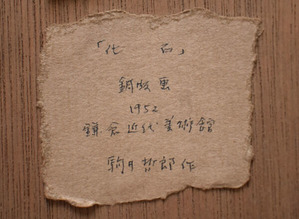 「化石」
銅版画
1952
鎌倉近代美術館
駒井哲郎作